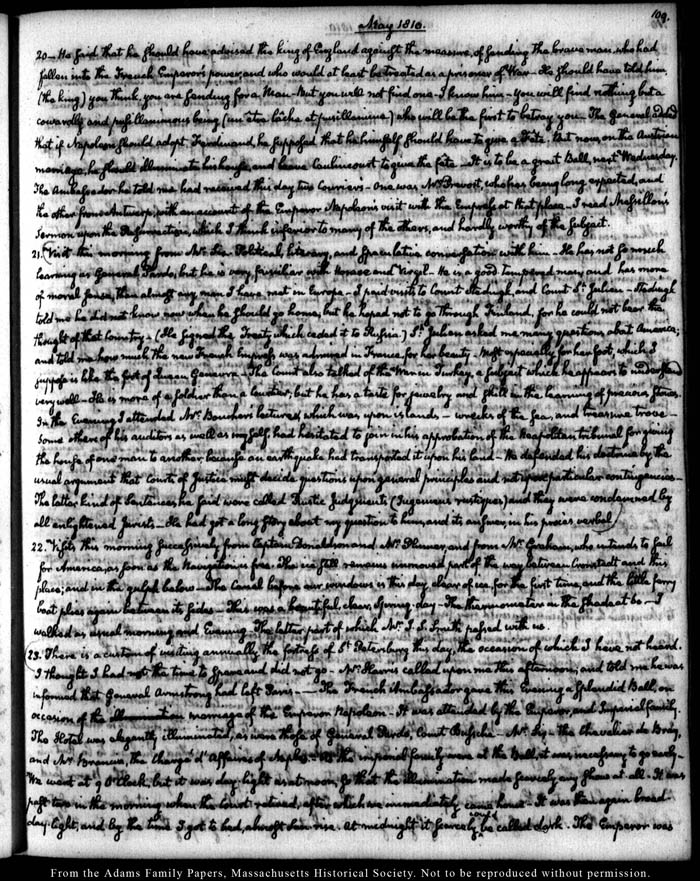 109.
May 1810.
20— He said that he should have advised the king of England against the measure, of sending the brave man who had
fallen into the French Emperor's power, and who would at least be treated as a prisoner of War— He should have told him,
(the king) you think, you are sending for a Man— But you will not find one— I know him— You will find nothing but a
cowardly and pusillanimous being (un être lâche et pusillanime) who will be the first to betray you— The General added
that if Napoleon should adopt Ferdinand, he supposed that he himself should have to give a Fête. But now, on the Austrian
marriage, he should illuminate his house, and leave Caulincourt to give the fête— It is to be a great Ball, next Wednesday.
The Ambassador he told me had received this day two Couriers— One was Mr. Prevost, who has being long expected, and
the other from Antwerp, with an account of the Emperor Napoleon's visit with the Empress at that place— I read Massillon's
Sermon upon the Resurrection, which I think inferior to many of the others, and hardly worthy of the subject.
21. Visit this morning from Mr. Six— Political, literary, and speculative conversation with him— He has not so much
learning as General Pardo, but he is very familiar with Horace and Virgil— He is a good tempered man, and has more
of moral sense, than almost any man I have met in Europe— I paid visits to Count Stedingk, and Count St. Julien— Stedingk
told me he did not know now when he should go home; but he hoped not to go through Finland, for he could not bear the
thought of that Country— (He signed the Treaty which ceded it to Russia.) St. Julien asked me many questions about America;
and told me how much the new French Empress was admired in France for her beauty— Most especially for her foot, which I
suppose is like the foot of Queen The Count also talked of the War in Turkey, a subject which he appears to understand
very well— He is more of a soldier than a Courtier; but he has a taste for jewelry and skill in the learning of precious stones.
In the Evening I attended Mr. lecture, which was upon islands— wrecks of the sea, and treasure trove—
Some others of his auditors as well as myself, had hesitated to join in his approbation of the Neapolitan tribunal for giving
the house of one man to another because an earthquake had transported it upon his land— He defended his doctrine by the
usual argument that Court of Justice must decide questions upon general principles and not upon particular contingencies—
The latter kind of Sentences he said were called Rustic Judgments (Jugemens rustiques) and they were condemned by
all enlightened Jurists— He had got a long story about my question to him, and its answer, in his procès verbal.
22. Visits this morning successively from Captain Donaldson and Mr. Plummer, and from Mr. Graham, who intends to sail
for America, as soon as the Navigation is free. The ice still remains unmoved part of the way between Cronstadt and this
place; and in the gulph below— The Canal before our windows is this day clear of ice, for the first time, and the little ferry
boat plies again between its sides— This was a beautiful, clear, Spring day— The thermometer in the shade at 60— I
walked as usual morning and Evening. The latter part of which Mr. J. S. Smith passed with us.
23. There is a custom of visiting annually the fortress of St. Petersburg this day, the occasion of which I have not heard.
I thought I had not the time to spare and did not go— Mr. Harris called upon me this afternoon, and told me he was
informed that General Armstrong had left Paris— The French Ambassador gave this Evening a splendid Ball, on
occasion of the marriage of the Emperor Napoleon— It was attended by the Emperor, and Imperial family.
The Hotel was elegantly illuminated, as were those of General Pardo, Count Bussche— Mr. Six— the Chevalier de Bray,
and Mr. Brancia, the Chargé d'Affaires of Naples— As the imperial family were at the Ball, it was necessary to go early—
We went at 9 O'Clock, but it was day-light as at noon, so that the illumination made scarcely any show at all— It was
past two in the morning when the Court retired, after which we immediately came home— It was then again broad
day-light, and by the time I got to bed, almost Sun-rise. At midnight it scarcely could be called dark. The Emperor was
From the Adams Family Papers, Massachusetts Historical Society. Not to be reproduced without permission.